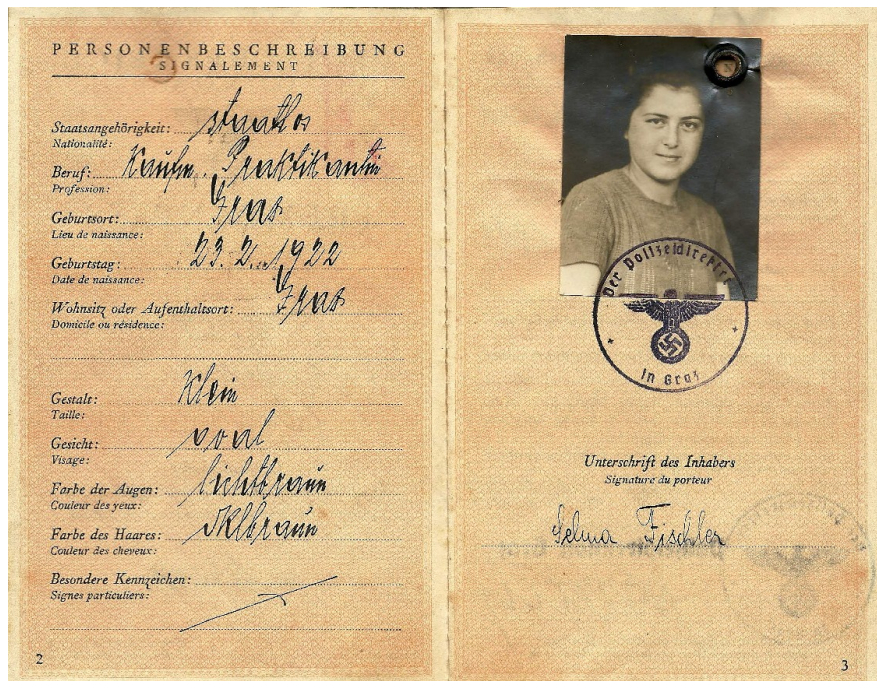 PERSONENBESCHREIBUNG
SIGNALEMENT
Staatsangehörigkeit: staatlos
Nationalité:
Beruf: Kaufm. Praktikantin
Profession:
Geburtsort: Graz
Lieu de naissance:
Geburtstag: 23.2.1922
Date de naissance:
Wohnsitz oder Aufenthaltsort: Graz
Domicile ou résidence:
Gestalt: klein
Taille:
Gesicht: oval
Visage:
Farbe der Augen: lichtbraun
Couleur des yeux:
Farbe des Haares: dklbraun
Couleur des cheveux:
Besondere Kennzeichen:
Signes particuliers:
2
Der Polizeidirektor
in Graz
Unterschrift des Inhabers
Signature du porteur
Selma Fischler
3